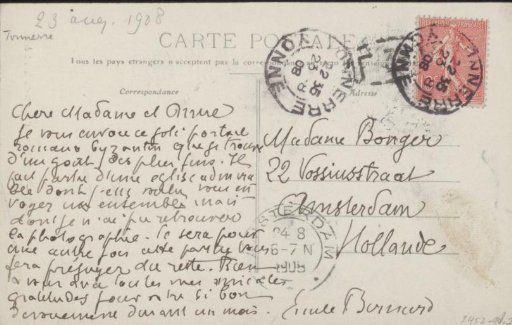 23 aug. 1908
Tonnerre
CARTE POSTALE
Tous les pays étrangers n'acceptent pas la correspondance
Correspondance
Adresse
TONNERRE
YONNE
22 35
23 -8
08
TONNERRE
YONNE
22 35
23 -8
08
Chere Madame et Amie
Je vous envoie ce joli portail
romano byzantin que je trouve
d'un goût des plus fins. Il
fait partie d'une église admira
ble dont
voyer un ensemble mais
dont je n'ai pu retrouver
la photographie. Ce sera pour
une autre fois cette partie vous
fera préjuger du reste. Bien
à vous avec toutes mes amicales
gratitudes pour votre si bon
devouement durant un mois.
Emile Bernard
Madame Bonger
22 Vossiusstraat
Amsterdam
Hollande
AMSTERDAM
24 8
6-7 N
1908